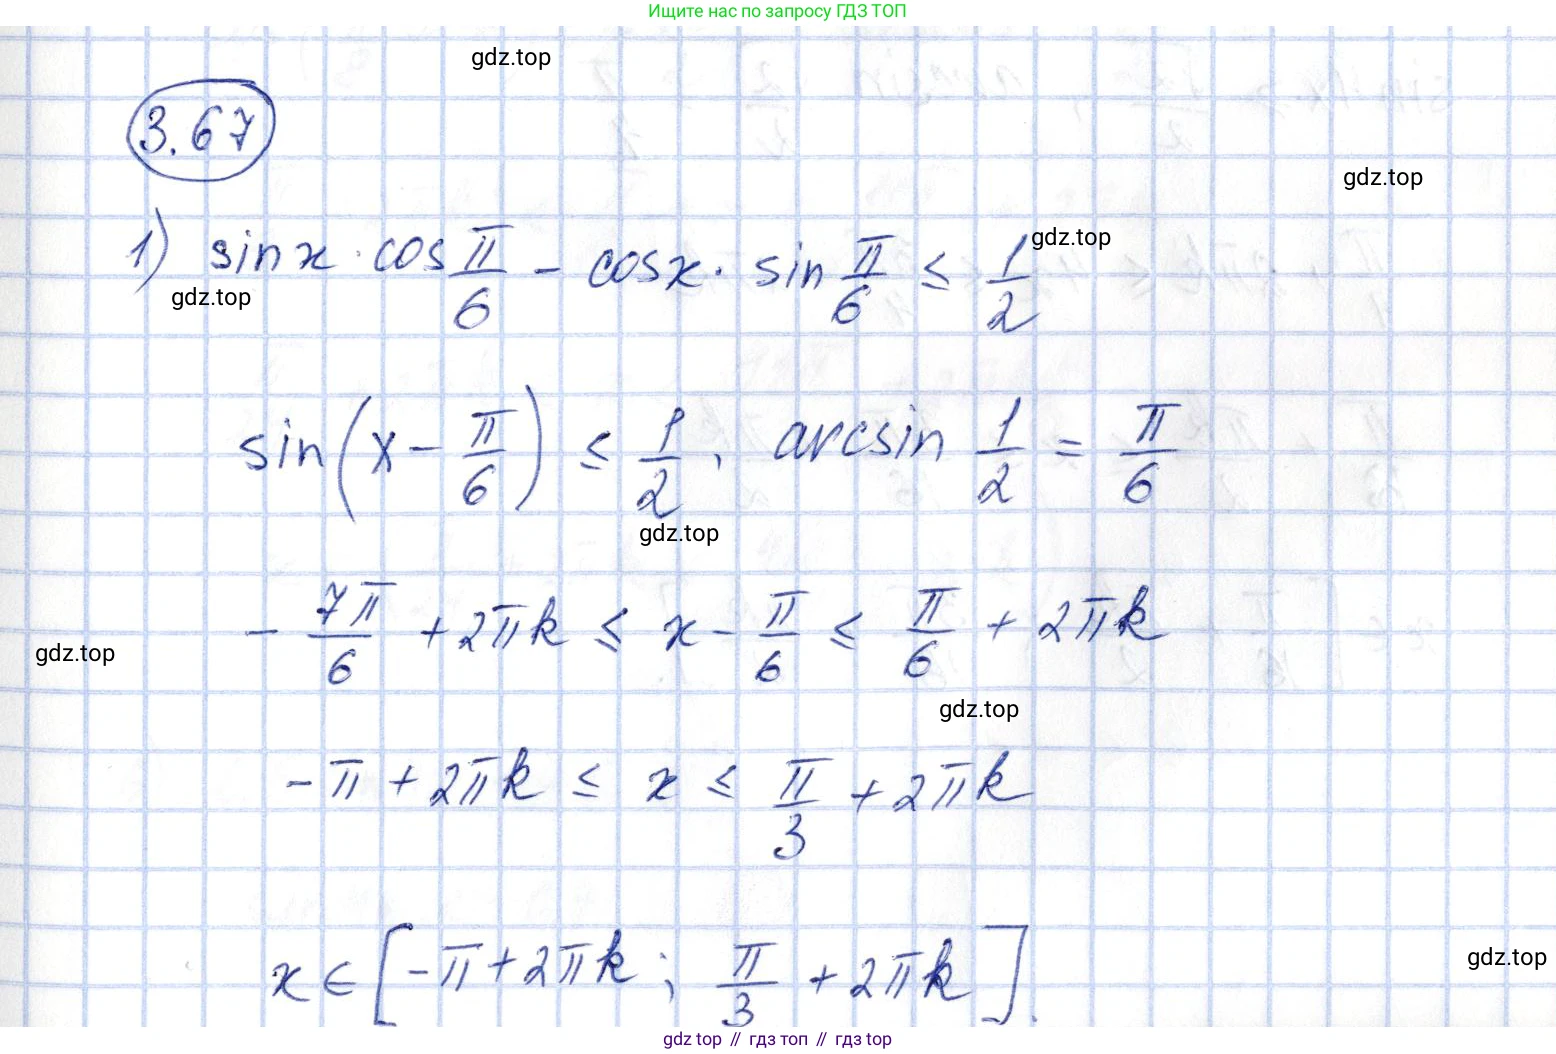 Ищите нас по запросу ГДЗ ТОП
gdz.top
3.67
gdz.top
1) sin x · cos π/6 - cos x · sin π/6 ≤ 1/2
gdz.top
gdz.top
sin(x - π/6) ≤ 1/2, arcsin 1/2 = π/6
gdz.top
- 7π/6 + 2πk ≤ x - π/6 ≤ π/6 + 2πk
gdz.top
gdz.top
-π + 2πk ≤ x ≤ π/3 + 2πk
x ∈ [-π + 2πk; π/3 + 2πk].
gdz.top
gdz top // гдз топ // гдз top